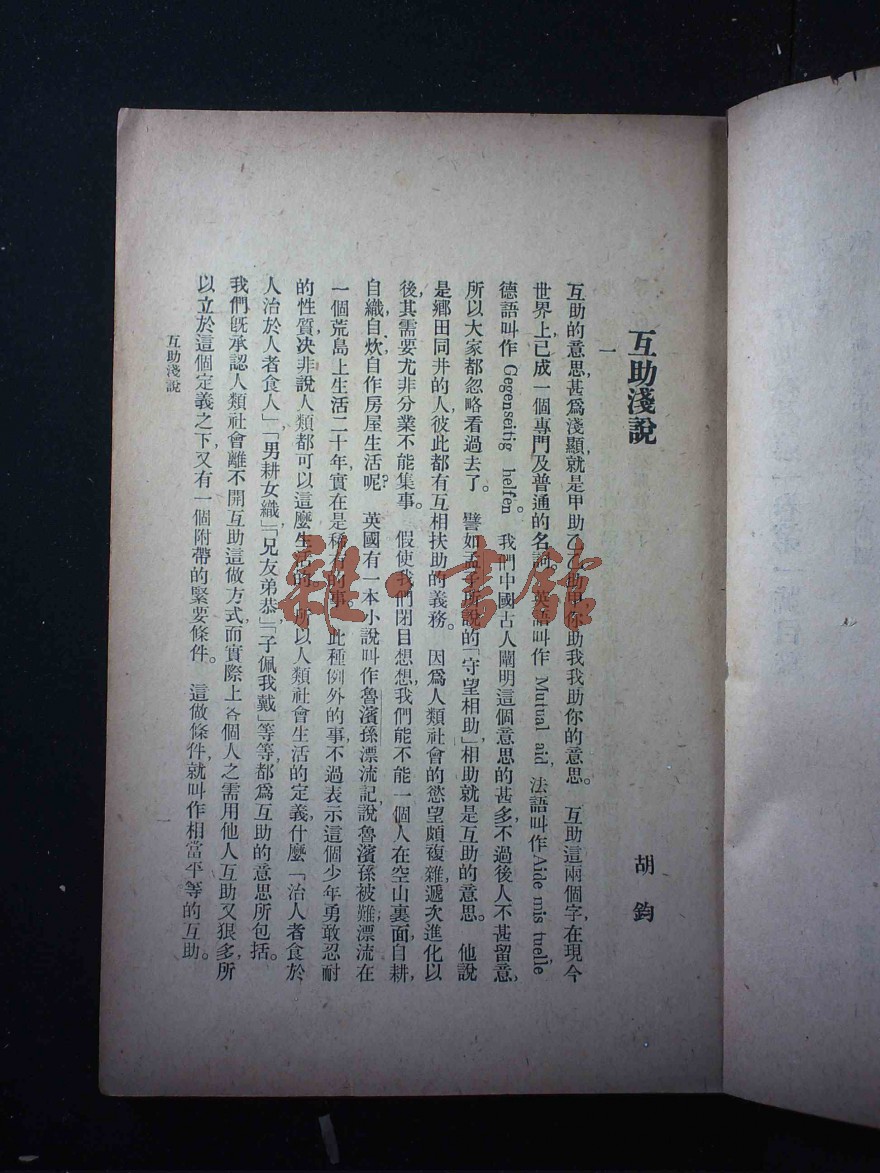 互助淺說
胡鈞
一
互助的意思甚爲淺顯,就是甲助乙,乙助甲,你助我,我助你的意思。　互助這兩個字,在現今
世界上已成一個專門及普通的名詞。英語叫作 Mutual aid, 法語叫作 Aide mis tuelle
德語叫作 Gegenseitig helfen。　我們中國古人闡明這個意思的甚多,不過後人不甚留意,
所以大家都忽略看過去了。　譬如孟子所說的「守望相助」,相助就是互助的意思。　他說
是鄉田同井的人,彼此都有互相扶助的義務。　因爲人類社會的慾望頗複雜,遞次進化以
後,其需要尤非分業不能集事。　假使我們閉目想想,我們能不能一個人在空山裏面自耕,
自織,自炊,自作房屋生活呢?　英國有一本小說叫作魯濱孫漂流記,說魯濱孫被難漂流在
一個荒島上生活二十年,實在是稀有的事。此種例外的事,不過表示這個少年勇敢忍耐
的性質,决非說人類都可以這麼生活的。所以人類社會生活的定義,什麼「治人者食於
人,治於人者食人」,「男耕女織」,「兄友弟恭」,「子佩我戴」等等,都爲互助的意思所包括。
我們旣承認人類社會離不開互助這做方式,而實際上各個人之需用他人互助又狠多,所
以立於這個定義之下,又有一個附帶的緊要條件。　這做條件,就叫作相當平等的互助。
互助淺說
一
雜·書館